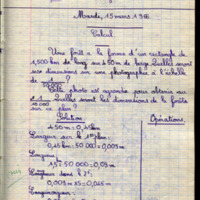 Mardi, 15 mars 1966
Calcul
Une forêt a la forme d'un rectangle de
1,500 km de long sur 450 m de large. Quelles seront
ses dimensions sur une photographie à l'échelle
de 1
50 000
Cette photo est agrandie pour obtenir au
1
10 000
Quelles seront les dimensions de la forêt
sur ce plan ?
Solution Opérations
450 m = 0,45 km
Largeur sur le 1er :
0,45 km : 50 000 = 0,009 m
Longueur :
1,5 : 50 000 = 0,03 m
Largeur dans le 2e :
0,009 m x 5 = 0,045 m
Longueur :